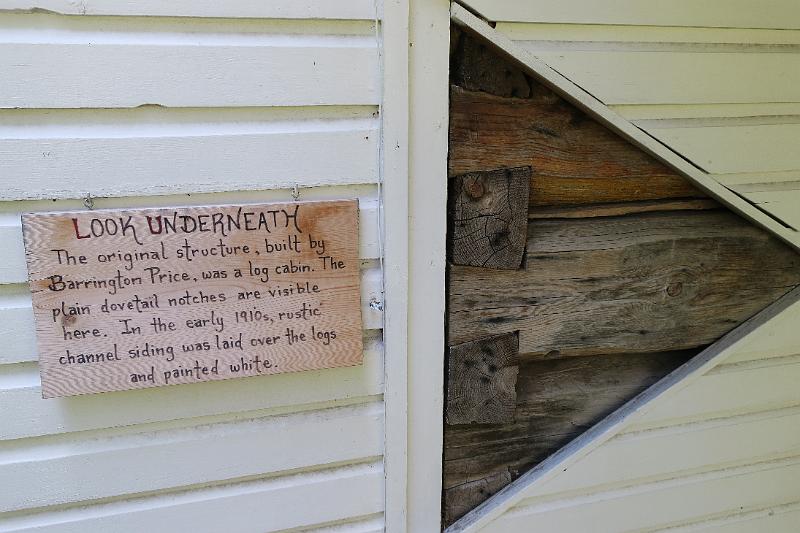 LOOK UNDERNEATH
The original structure, built by
Barrington Price, was a log cabin. The
plain dovetail notches are visible
here. In the early 1910s, rustic
channel siding was laid over the logs
and painted white.